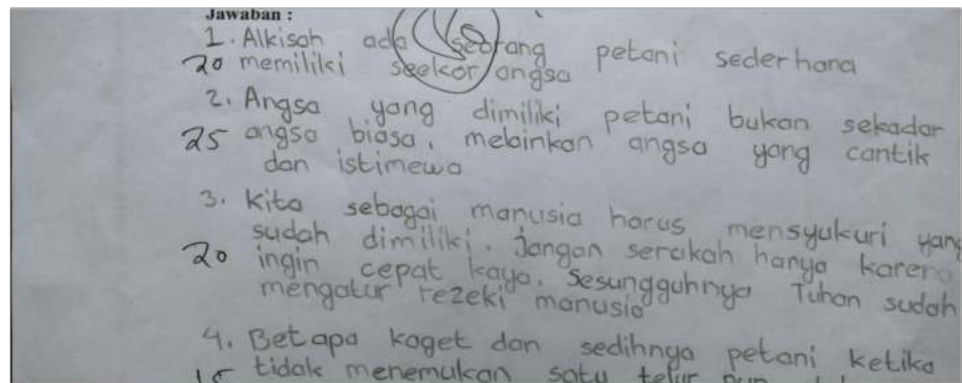 Jawaban :
1. Alkisah ada seorang petani sederhana
20 memiliki seekor angsa
2. Angsa yang dimiliki petani bukan sekadar
25 angsa biasa, melainkan angsa yang cantik
dan istimewa
3. Kita sebagai manusia harus mensyukuri yang
sudah dimiliki. Jangan serakah hanya karena
20 ingin cepat kaya. Sesungguhnya Tuhan sudah
mengatur rezeki manusia
4. Betapa kaget dan sedihnya petani ketika
15 tidak menemukan satu telur pun